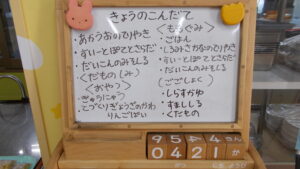 きょうのこんだて
あかうおのてりやき
すいーとぽてとさらだ
だいこんのみそしる
くだもの(しみ)
<おやつ>
ぎゅうにゅう
てづくりぎょうざのかわ
りんごぱい
<もちぐみ>
・ごはん
・しろみざかなのてりやき
・すいーとぽてとさらだ
・だいこんのみそしる
(ごごしょく)
・しらすがゆ
・すましじる
・くだもの
9 5 4 さん
0 4 2 1 が